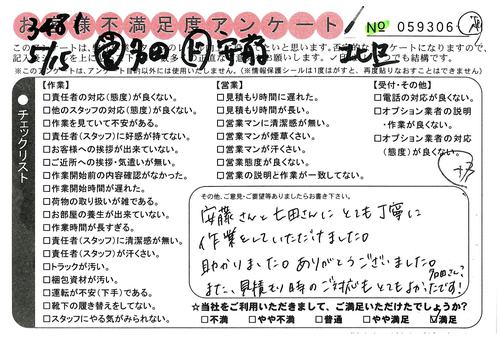 お客様不満足度アンケート
No 059306
5/15
【作業】
□責任者の対応(態度)が良くない。
□他のスタッフの対応(態度)が良くない。
□作業を見ていて不安がある。
□責任者(スタッフ)に好感が持てない。
□お客様への挨拶が出来ていない。
□ご近所への挨拶・気遣いが無い。
□作業開始前の内容確認がなかった。
□作業開始時間が遅れた。
□荷物の取り扱いが雑である。
□お部屋の養生が出来ていない。
□作業時間が長すぎる。
□責任者(スタッフ)に清潔感が無い。
□責任者(スタッフ)が汗くさい。
□トラックが汚い。
□梱包資材が汚い。
□運転が不安(下手)である。
□靴下の履き替えをしてない。
□スタッフにやる気がみられない。
【営業】
□見積もり時間に遅れた。
□見積もり時間が長い。
□営業マンに清潔感が無い。
□営業マンが煙草くさい。
□営業マンが汗くさい。
□営業態度が良くない。
□営業の説明と作業が一致してない。
【受付・その他】
□電話の対応が良くない。
□オプション業者の説明
・作業が良くない。
□オプション業者の対応
(態度)が良くない。
チェックリスト
その他、ご意見・ご要望等ありましたらお書き下さい。
安藤さんと七田さんにとても丁寧に
作業をしていただけました。
助かりました。ありがとうございました。
また、見積もり時のご対応もとてもよかったです!
☆当社をご利用いただきまして、ご満足いただけたでしょうか?
□不満 □やや不満 □普通 □やや満足 ☑満足